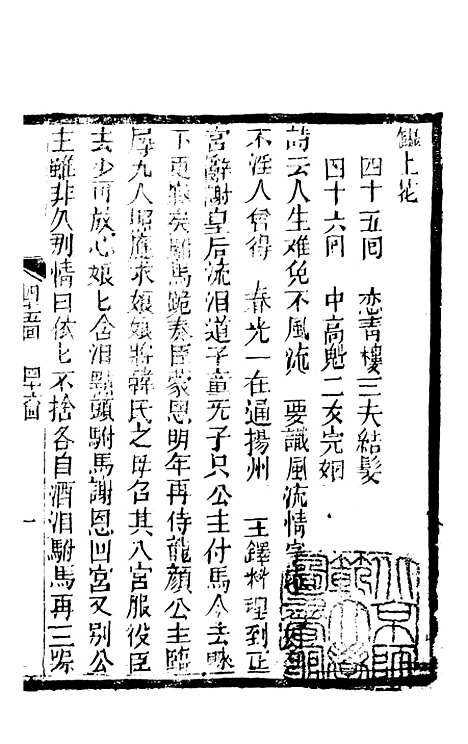 錦上花
四十五囘 恋青樓三夫結髮
四十六囘 中高魁二女完姻
詩云人生难免不風流 要識風流情字
不淫人會得 春光一在通揚州 王鐸料理到正
宮辭謝皇后流泪道子童旡子只公主付馬今去
下更寂矣駙馬跪奏臣蒙恩明年再侍龍顔公主臨
九人照應求娘娘將韓氏之母召其入宮服役臣
去少可放心娘匕含泪點頭駙馬謝恩囬宮又别公
主雖非久别情曰依匕不捨各自洒泪駙馬再三
四十五囘 四十六囘 一